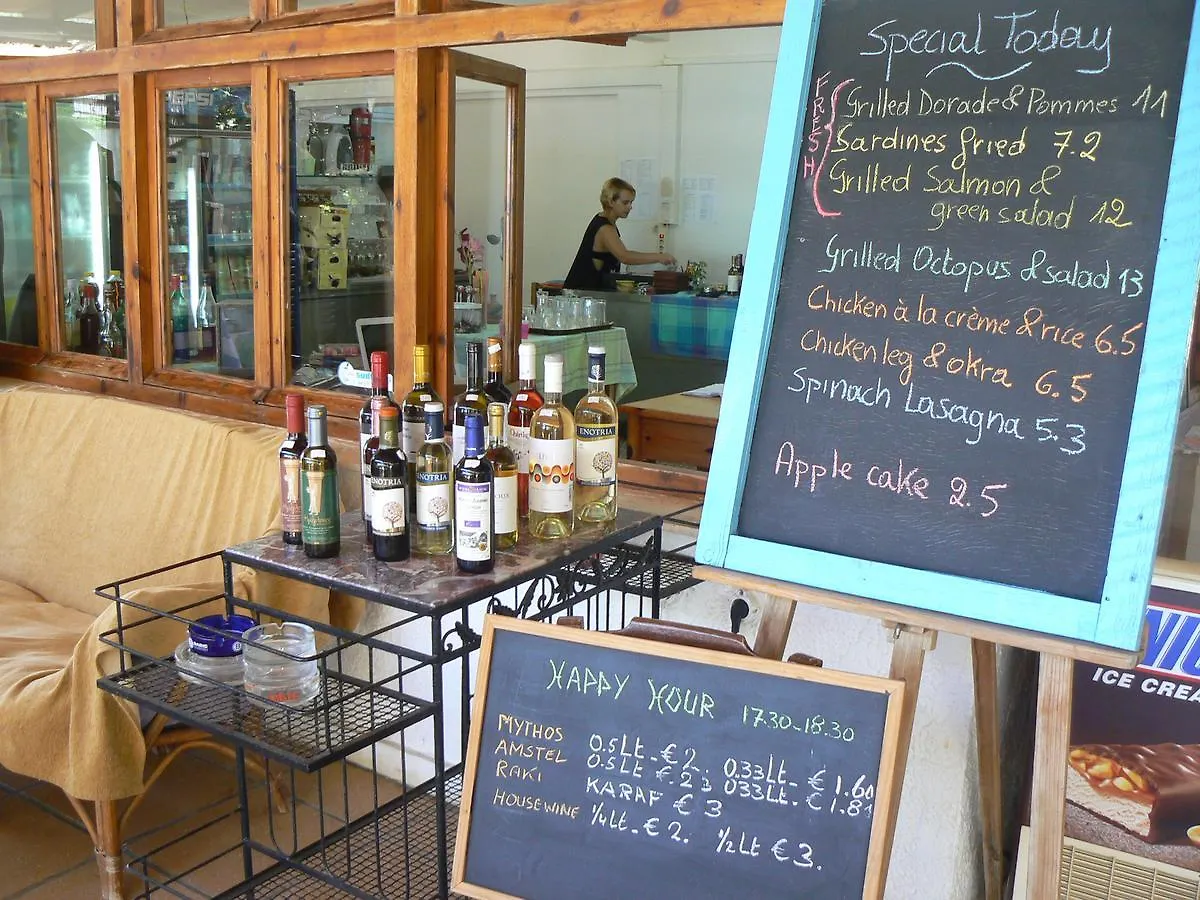 Special Today
FRESH
Grilled Dorade & Pommes 11
Sardines fried 7.2
Grilled Salmon &
green salad 12
Grilled Octopus & salad 13
Chicken à la crème & rice 6.5
Chicken leg & okra 6.5
Spinach Lasagna 5.3
Apple cake 2.5
HAPPY HOUR 17.30-18.30
MYTHOS 0.5Lt - € 2 0.33Lt - € 1.60
AMSTEL 0.5Lt - € 2.3 033Lt - € 1.81
RAKI KARAF € 3
HOUSEWINE 1/4Lt - € 2. 1/2Lt € 3.
ENOTRIA
ENOTRIA
ENOTRIA
PEPSI
ICE CREA